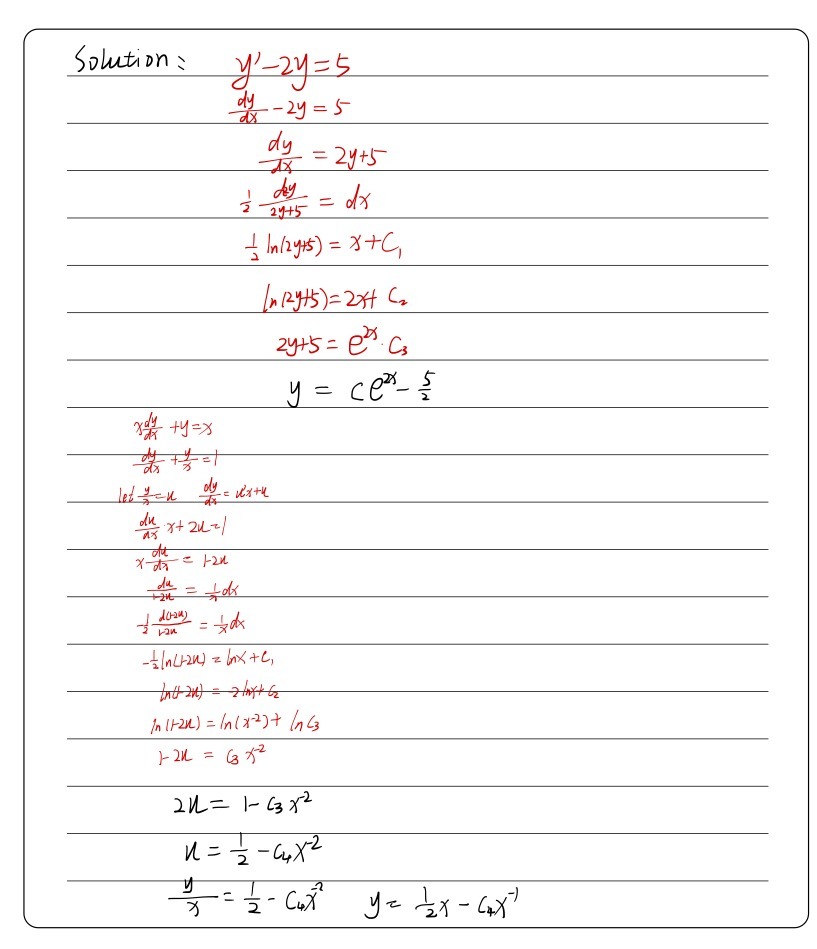 Solution: y'-2y=5
dy/dx -2y=5
dy/dx = 2y+5
1/2 d2y/2y+5 = dx
1/2 ln(2y+5) = x+C₁
ln(2y+5)=2x+C₂
2y+5 = e^2x · C₃
y = Ce^2x - 5/2
x dy/dx + y = x
dy/dx + y/x = 1
let y/x = u dy/dx = u'x+u
du/dx · x + 2u = 1
x du/dx = 1-2u
du/1-2u = 1/x dx
-1/2 d(1-2u)/1-2u = 1/x dx
-1/2 ln(1-2u) = lnx + C₁
ln(1-2u) = -2lnx + C₂
ln(1-2u) = ln(x^-2) + lnC₃
1-2u = C₃x^-2
2u = 1-C₃x^-2
u = 1/2 - C₄x^-2
y/x = 1/2 - C₄x^-2 y = 1/2 x - C₄x^-1